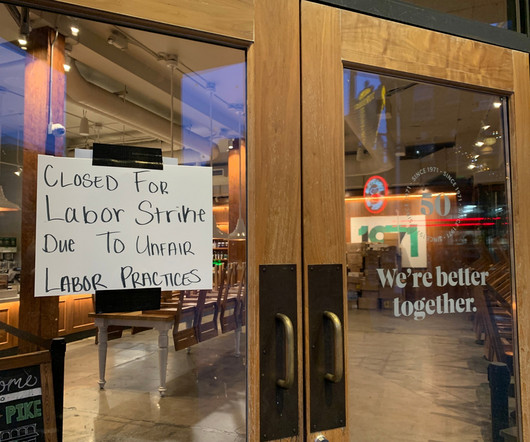 CLOSED FOR
Labor Strike
DUE TO UNFAIR
LABOR PRACTICES
SINCE 1971 · SINCE 1971
50
1971
We're better
together.
PIKE